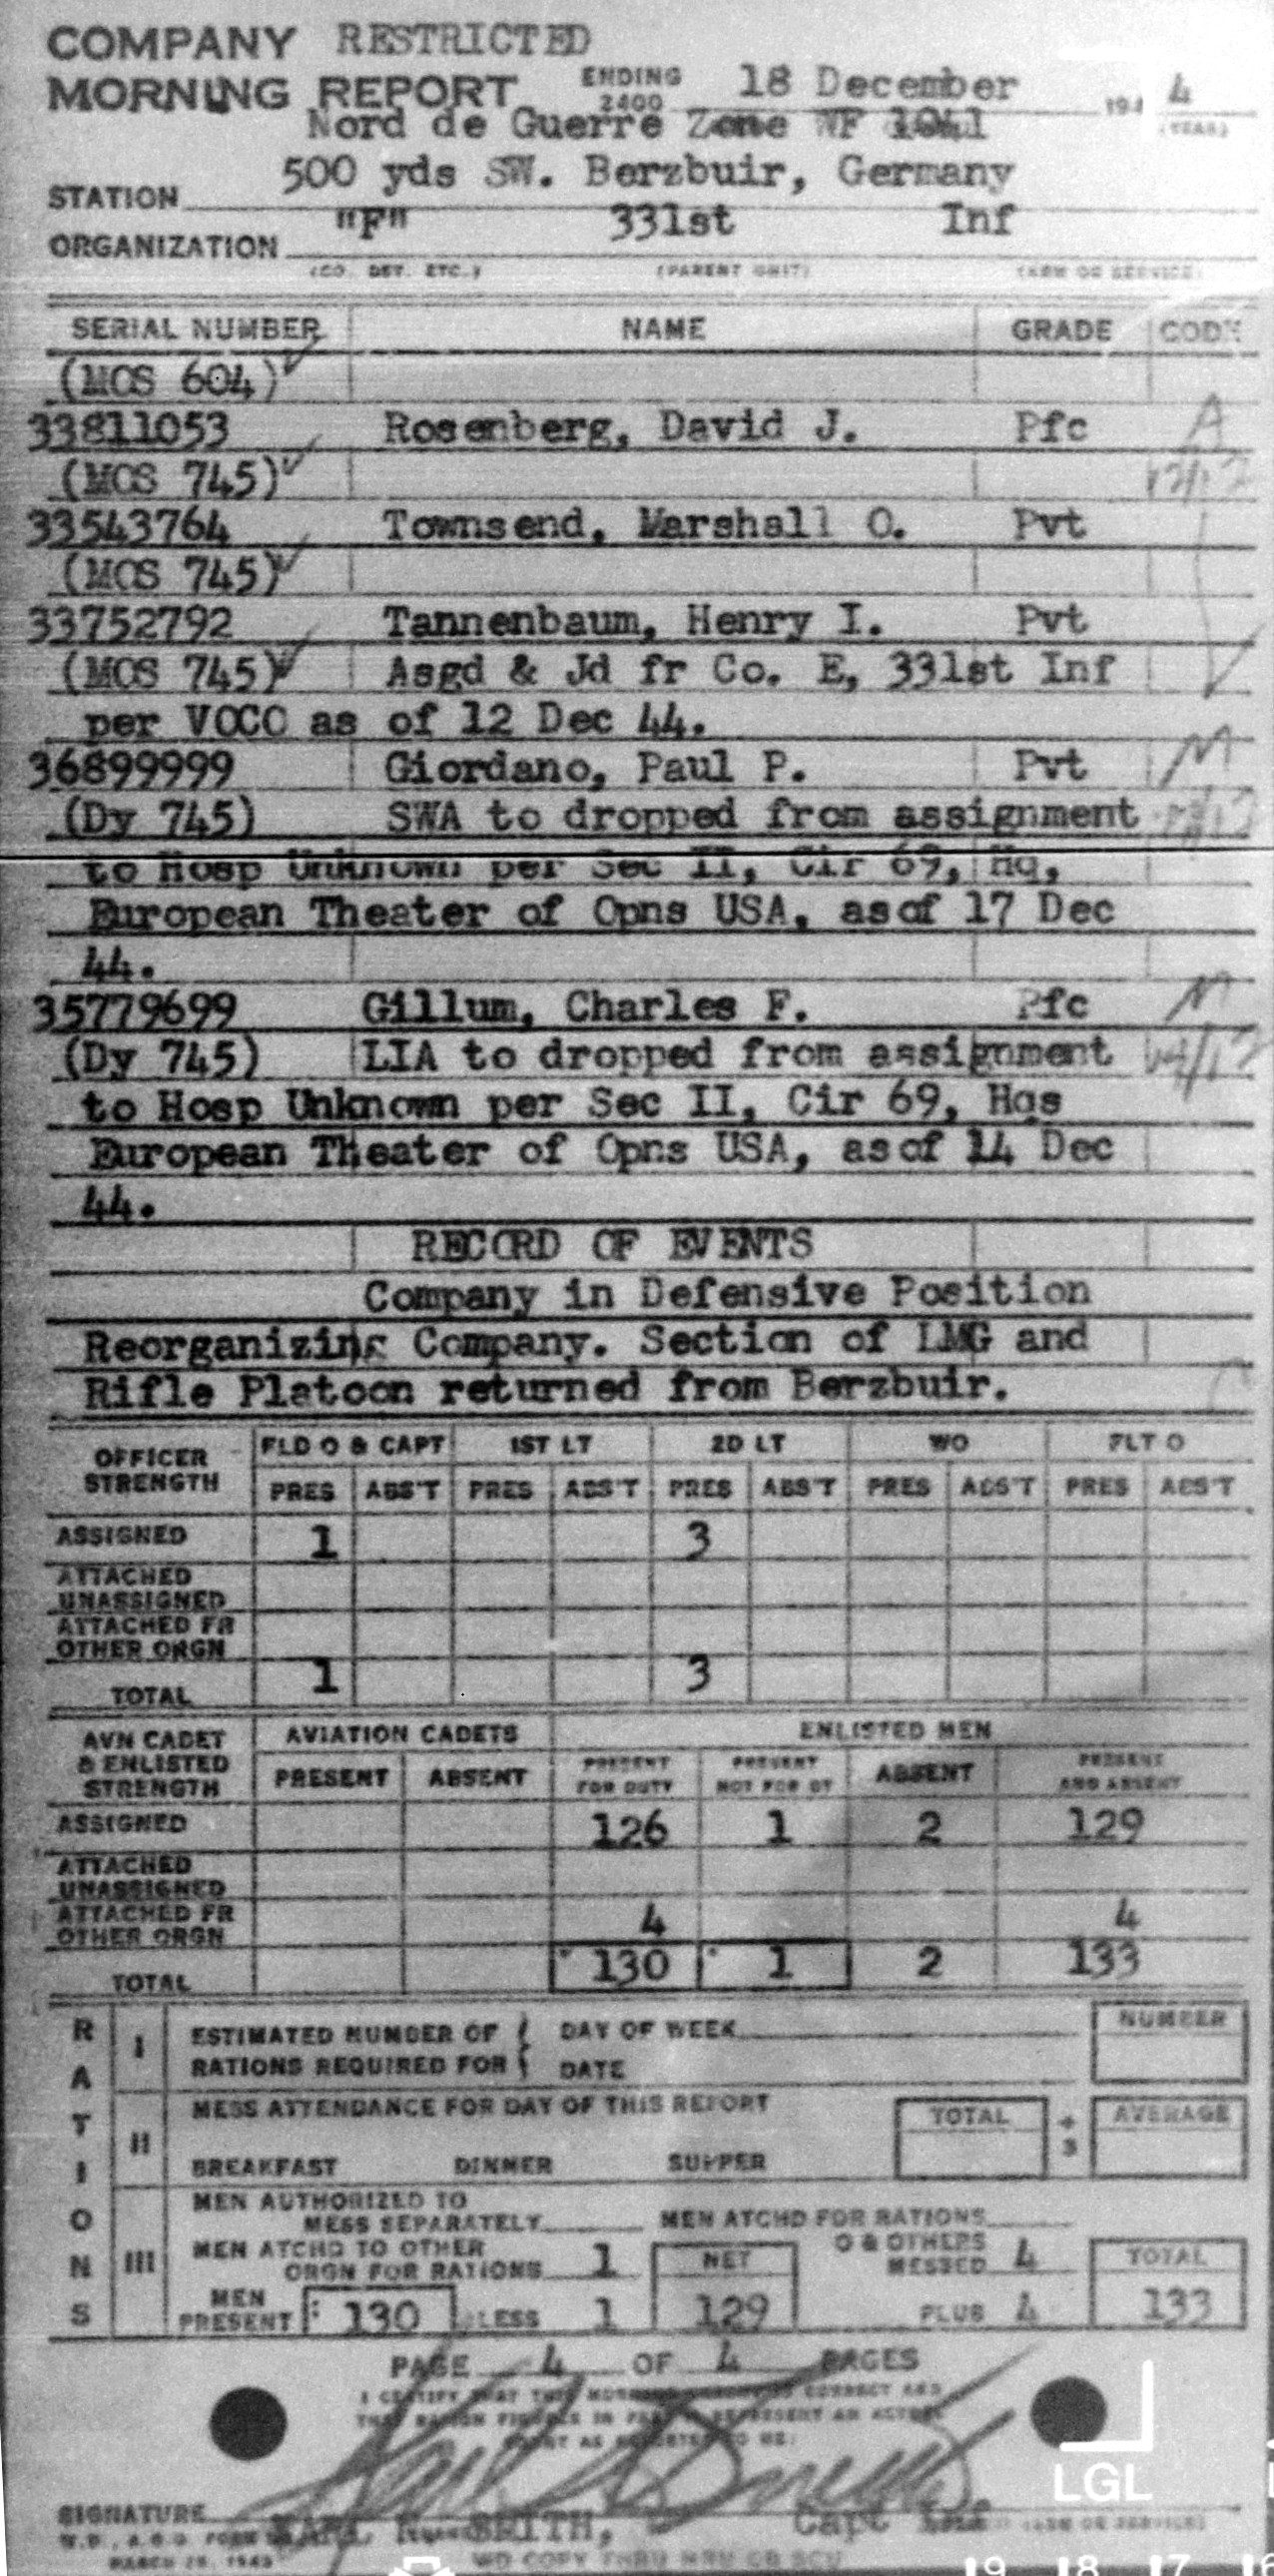 COMPANY RESTRICTED
MORNING REPORT ENDING 2400 18 December 194 4
(YEAR)
Nord de Guerre Zone WF 1041
500 yds SW. Berzbuir, Germany
STATION
ORGANIZATION "F" 331st Inf
(CO. DET. ETC.) (PARENT UNIT) (ARM OR SERVICE)
SERIAL NUMBER NAME GRADE CODE
(MOS 604)
33811053 Rosenberg, David J. Pfc A
(MOS 745) 12/12
33543764 Townsend, Marshall O. Pvt
(MOS 745)
33752792 Tannenbaum, Henry I. Pvt
(MOS 745) Asgd & Jd fr Co. E, 331st Inf
per VOCC as of 12 Dec 44.
36899999 Giordano, Paul P. Pvt M
(Dy 745) SWA to dropped from assignment
to Hosp Unknown per Sec II, Cir 69, Hq,
European Theater of Opns USA, as of 17 Dec
44.
35779699 Gillum, Charles F. Pfc M
(Dy 745) LIA to dropped from assignment
to Hosp Unknown per Sec II, Cir 69, Hqs
European Theater of Opns USA, as of 14 Dec
44.
RECORD OF EVENTS
Company in Defensive Position
Reorganizing Company. Section of LMG and
Rifle Platoon returned from Berzbuir.
OFFICER STRENGTH FLD O & CAPT 1ST LT 2D LT WO FLT O
PRES ABS'T PRES ABS'T PRES ABS'T PRES ABS'T PRES ABS'T
ASSIGNED 1 3
ATTACHED UNASSIGNED
ATTACHED FR OTHER ORGN
TOTAL 1 3
AVN CADET & ENLISTED STRENGTH AVIATION CADETS ENLISTED MEN
PRESENT ABSENT PRESENT FOR DUTY PRESENT NOT FOR DY ABSENT PRESENT AND ABSENT
ASSIGNED 126 1 2 129
ATTACHED UNASSIGNED
ATTACHED FR OTHER ORGN 4 4
TOTAL 130 1 2 133
RATIONS
I ESTIMATED NUMBER OF RATIONS REQUIRED FOR DAY OF WEEK DATE NUMBER
II MESS ATTENDANCE FOR DAY OF THIS REPORT TOTAL ÷ 3 AVERAGE
BREAKFAST DINNER SUPPER
III MEN AUTHORIZED TO MESS SEPARATELY MEN ATCHD FOR RATIONS
MEN ATCHD TO OTHER ORGN FOR RATIONS 1 NET O & OTHERS MESSED 4 TOTAL
MEN PRESENT 130 LESS 1 129 PLUS 4 133
PAGE 4 OF 4 PAGES
I CERTIFY THAT THIS MORNING REPORT IS CORRECT AND
THAT RATION FIGURES IN PART REPRESENT AN ACTUAL
COUNT AS REPORTED TO ME:
SIGNATURE SMITH, Capt Inf
LGL
MARCH 1943 WD COPY THRU MRU OR SCU
19 18 17